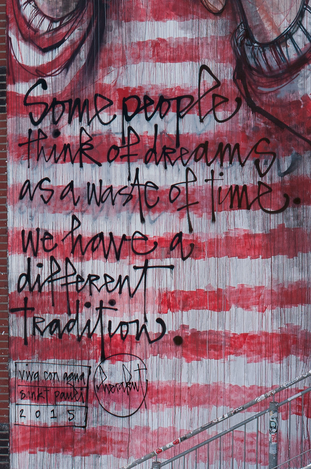 Some people
think of dreams
as a waste of time.
we have a
different
tradition.
viva con agua
sankt pauli
2015
herakut